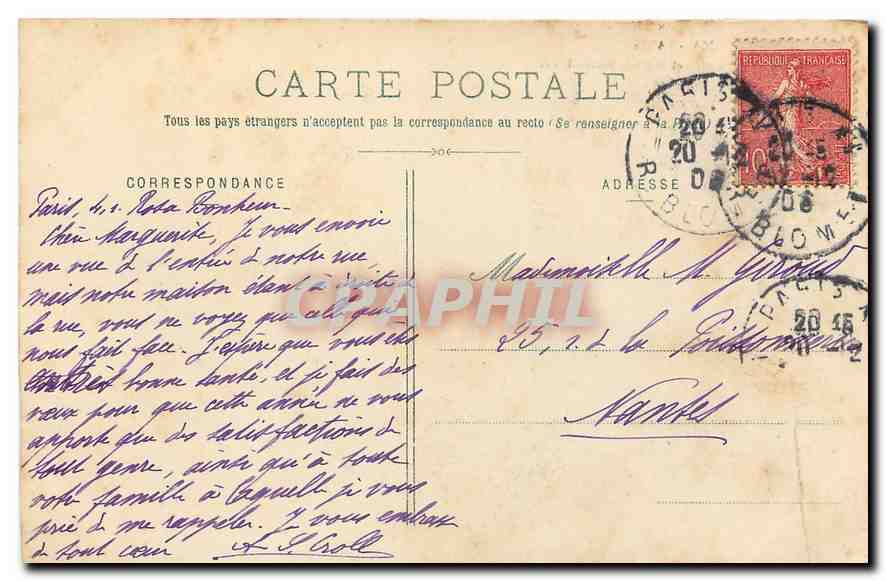 CARTE POSTALE
Tous les pays étrangers n'acceptent pas la correspondance au recto (Se renseigner à la Poste)
REPUBLIQUE FRANÇAISE
10
PARIS
20
R. BLOMET
PARIS
20 15
20 -12
CORRESPONDANCE
ADRESSE
Paris, 4, r. Rosa Bonheur-
Chère Marguerite, Je vous envoie
une vue à l'entrée à notre rue
mais notre maison étant à droite de
la rue, vous ne voyez que celle qui
nous fait face. J'espère que vous êtes
en très bonne santé, et je fais des
vœux pour que cette année ne vous
apporte que des satisfactions de
tout genre, ainsi qu'à toute
votre famille à laquelle je vous
prie de me rappeler. Je vous embrasse
de tout cœur
Mademoiselle M.
25, r. de la Poissonnerie
Nantes
CPAPHIL